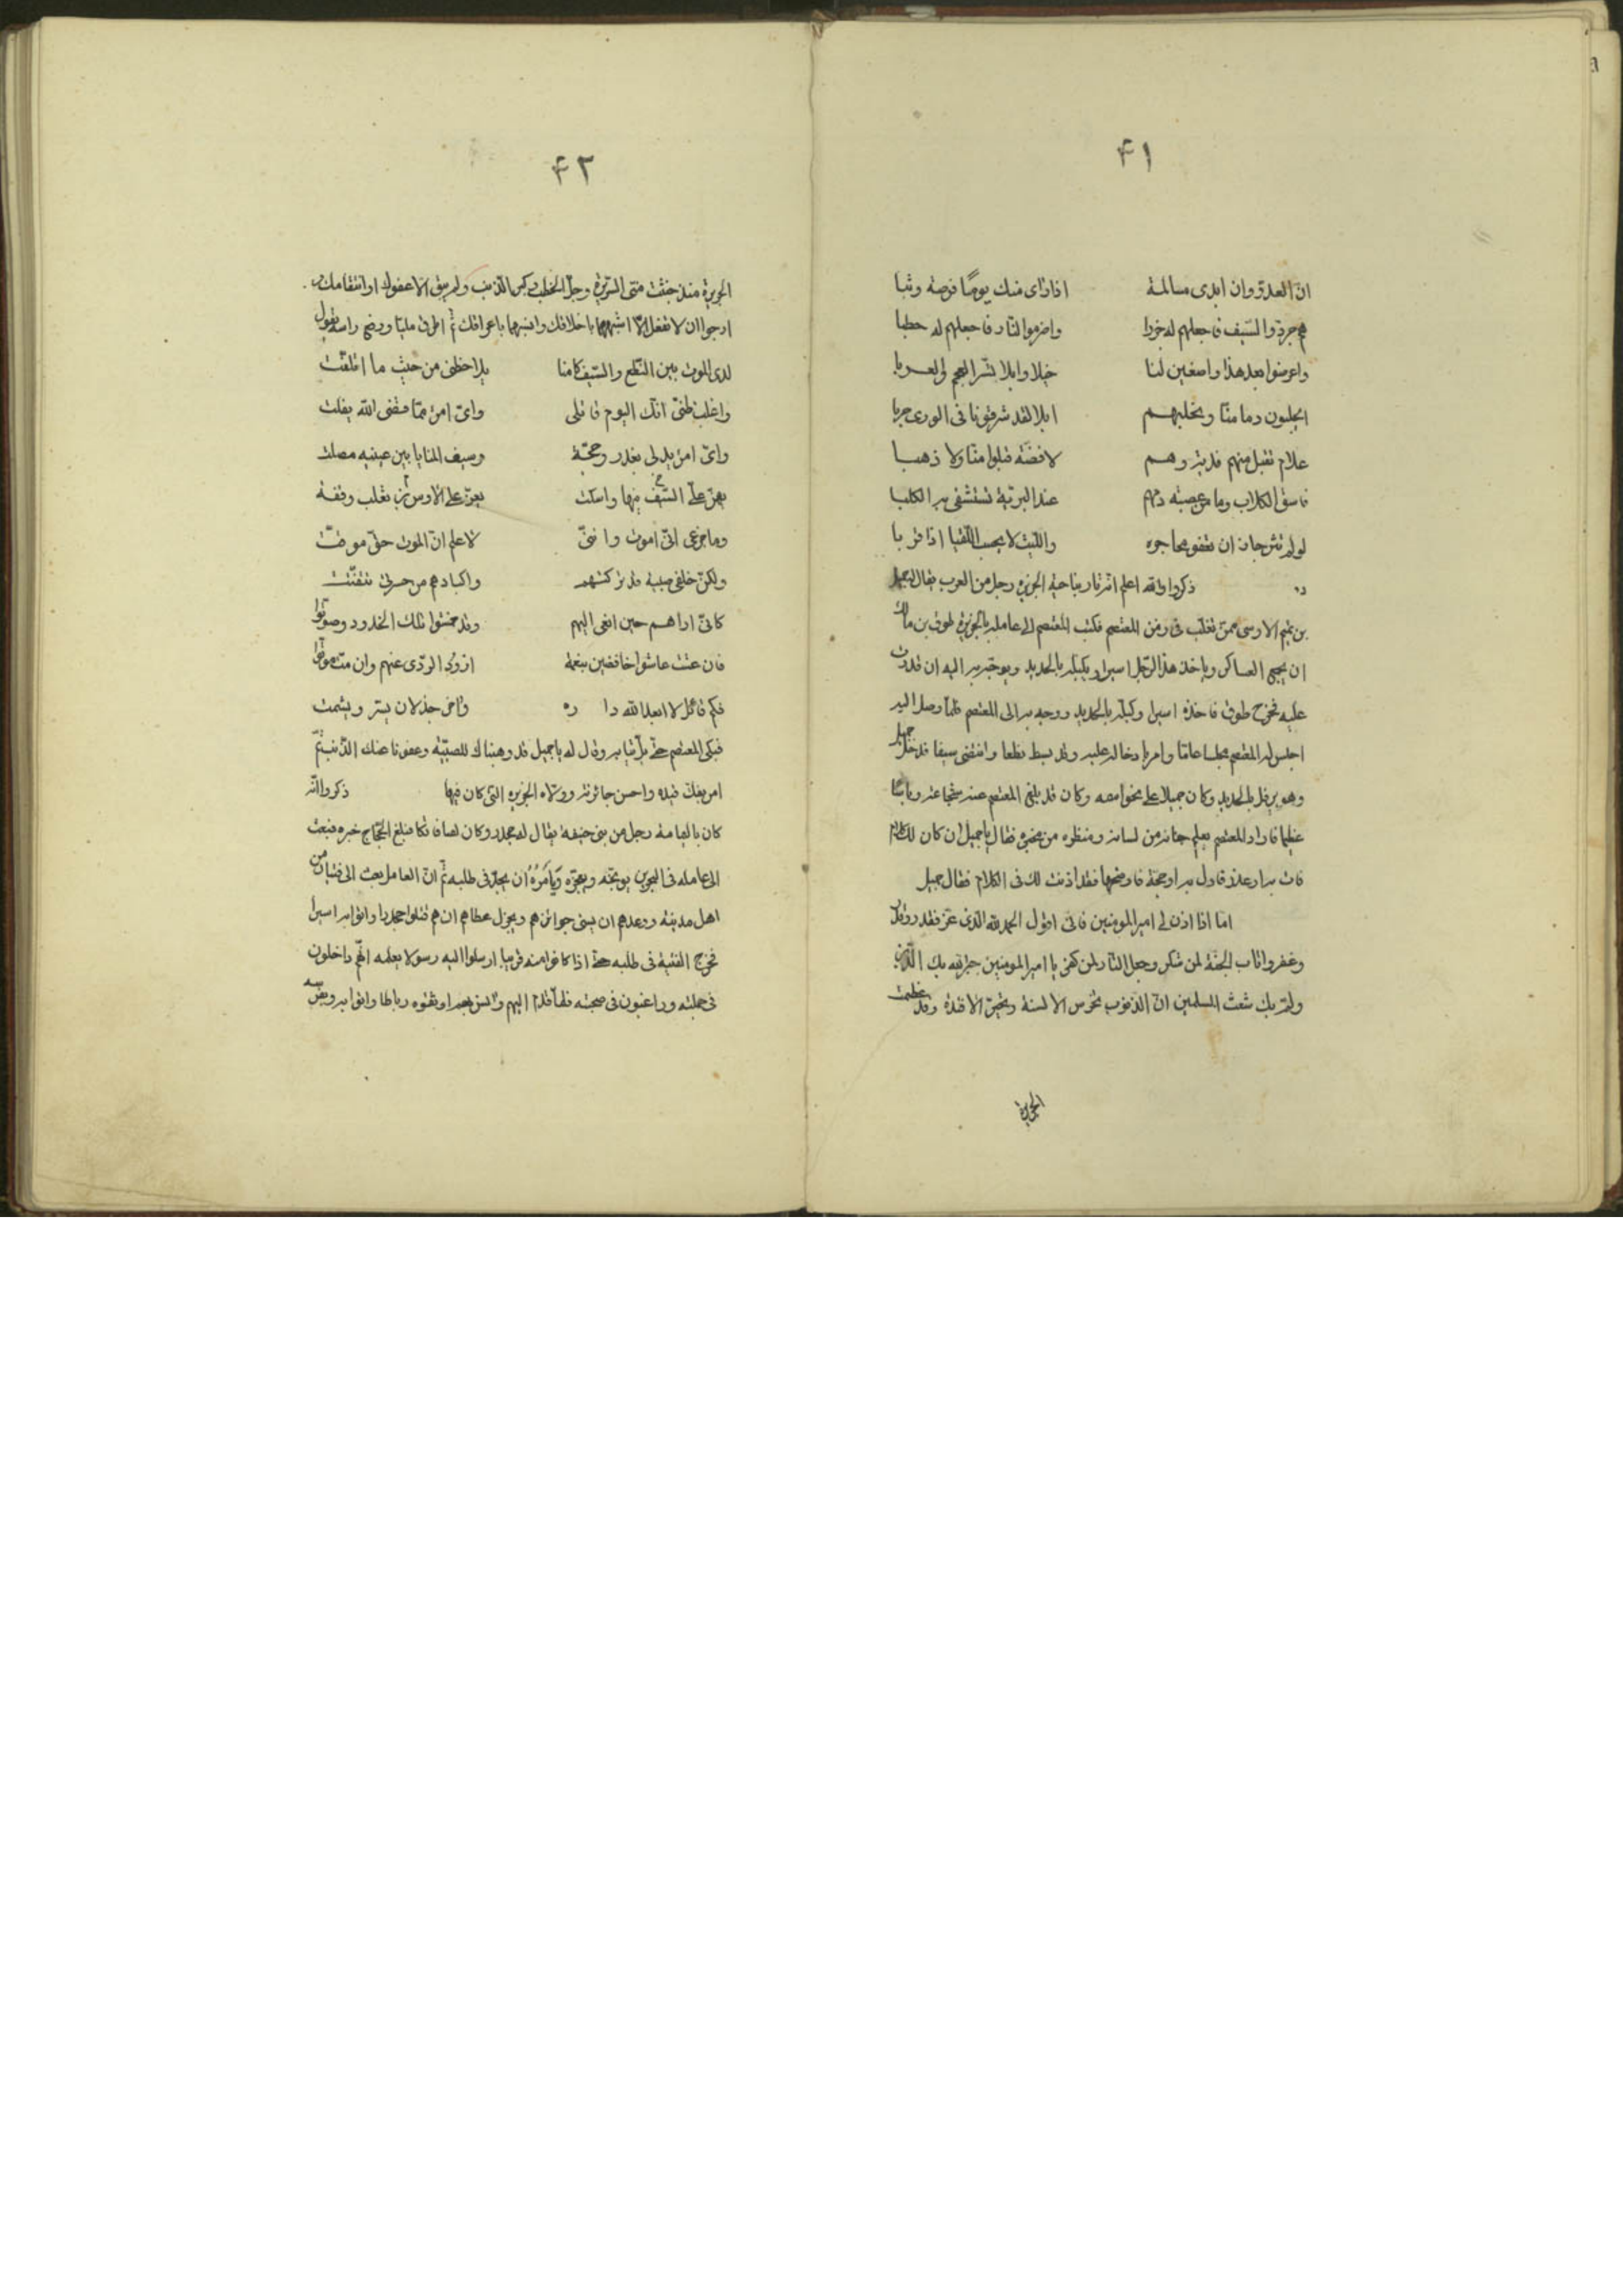 ۴۱
ان العدو وان ابدى مسالمة اذا رأى منك يومًا فرصة وثبا
هم جردوا السيف فاجعلهم له جزرا واضرموا النار فاجعلهم له حطبا
واعرضوا بعد هذا واصفين لنا خيلا وابلا تسر العجم والعربا
ايحلبون دما منا ونحلبهم ابلا لقد شرفونا فى الورى حربا
علام تقبل منهم فدية وهم لا فضة قبلوا منا ولا ذهبا
فاسق الكلاب دمهم عند البرية تستشفى به الكلبا
لو لم تسر جاز ان تعفو مجاجره والليث لا يحسب اللقيا اذا قربا
ذكروا والله اعلم انه ثار بناحية الجزيرة رجل من العرب يقال له جميل
بن تميم الاوسى ممن تغلب فى زمن المعتصم فكتب المعتصم الى عامله بالجزيرة طوق بن مالك
ان يجمع العساكر وياخذ هذا الرجل اسيرا ويكبله بالحديد ويوجه به اليه ان قدرت
عليه فخرج طوق فاخذه اسيرا وكبله بالحديد ووجه به الى المعتصم فلما وصل اليه
اجلس له المعتصم مجلسا عاما وامر بادخاله عليه وقد بسط نطعا وانتضى سيفا فدخل جميل
وهو يرفل بالحديد وكان جميلا وكان قد بلغ المعتصم عنه شجاعة وباسًا
عظيما فاراد المعتصم يعلم جنانه من لسانه ومنظره من مخبره فقال يا جميل ان كان لك كلام
فات به او عذر فادل به او حجة فاوضحها فقد اذنت لك فى الكلام فقال جميل
اما اذا اذن لى امير المؤمنين فانى اقول الحمد لله الذى عز فقدر وقدر
وغفر واثاب الجنة لمن شكر وجعل النار لمن كفر يا امير المؤمنين جبر الله بك الدين
ولم بك شعث المسلمين ان الذنوب تخرس الالسنة وتحير الافئدة وقد عظمت
الجريرة
۴۲
الجريرة منذ جنت منى السريرة وجل الخطب وكبر الذنب ولم يبق الا عفوك او انتقامك و
ارجوا ان لا تفعل الا اشبههما باخلاقك وانسبهما باعراقك ثم اطرق مليًا ورفع راسه يقول
لدى الموت بين النطع والسيف كامنا يلاحظنى من حيث ما اتلفت
واغلب ظنى انك اليوم قاتلى واى امرئ مما قضى الله يفلت
واى امرئ يدلى بعذر وحجة وسيف المنايا بين عينيه مصلت
يعز على الاوس بن تغلب وقفة يهز على السيف فيها واسكت
وما جزعى انى اموت واننى لاعلم ان الموت حق موقت
ولكن خلفى صبية قد تركتهم واكبادهم من حسرتى تتفتت
كانى اراهم حين انعى اليهم وقد خمشوا تلك الخدود وصوتوا
فان عشت عاشوا خافضين بنعمة اذود الردى عنهم وان مت موتوا
فكم قائل لا ابعد الله داره واخر جذلان يسر ويشمت
فبكى المعتصم حتى بل ثيابه وقال له يا جميل قد وهبناك للصبية وعفونا عنك الذنب ثم
امر بفك قيده واحسن جائزته وولاه الجزيرة التى كان فيها ذكروا انه
كان باليمامة رجل من بنى حنيفة يقال له جحدر وكان لصا فاتكا فبلغ الحجاج خبره فبعث
الى عامله فى البحرين يوبخه ويعجزه ويامره ان يجد فى طلبه ثم ان العامل بعث الى فتيان من
اهل مدينة ووعدهم ان يسنى جوائزهم ويجزل عطاهم ان هم قتلوا جحدرا واتوا به اسيرا
فخرج الفتية فى طلبه حتى اذا كانوا منه قريبا ارسلوا اليه رسولا يعلمه انهم داخلون
فى جملته وراغبون فى صحبته فلما قدم اليهم وانس بهم اوثقوه رباطا واتوا به